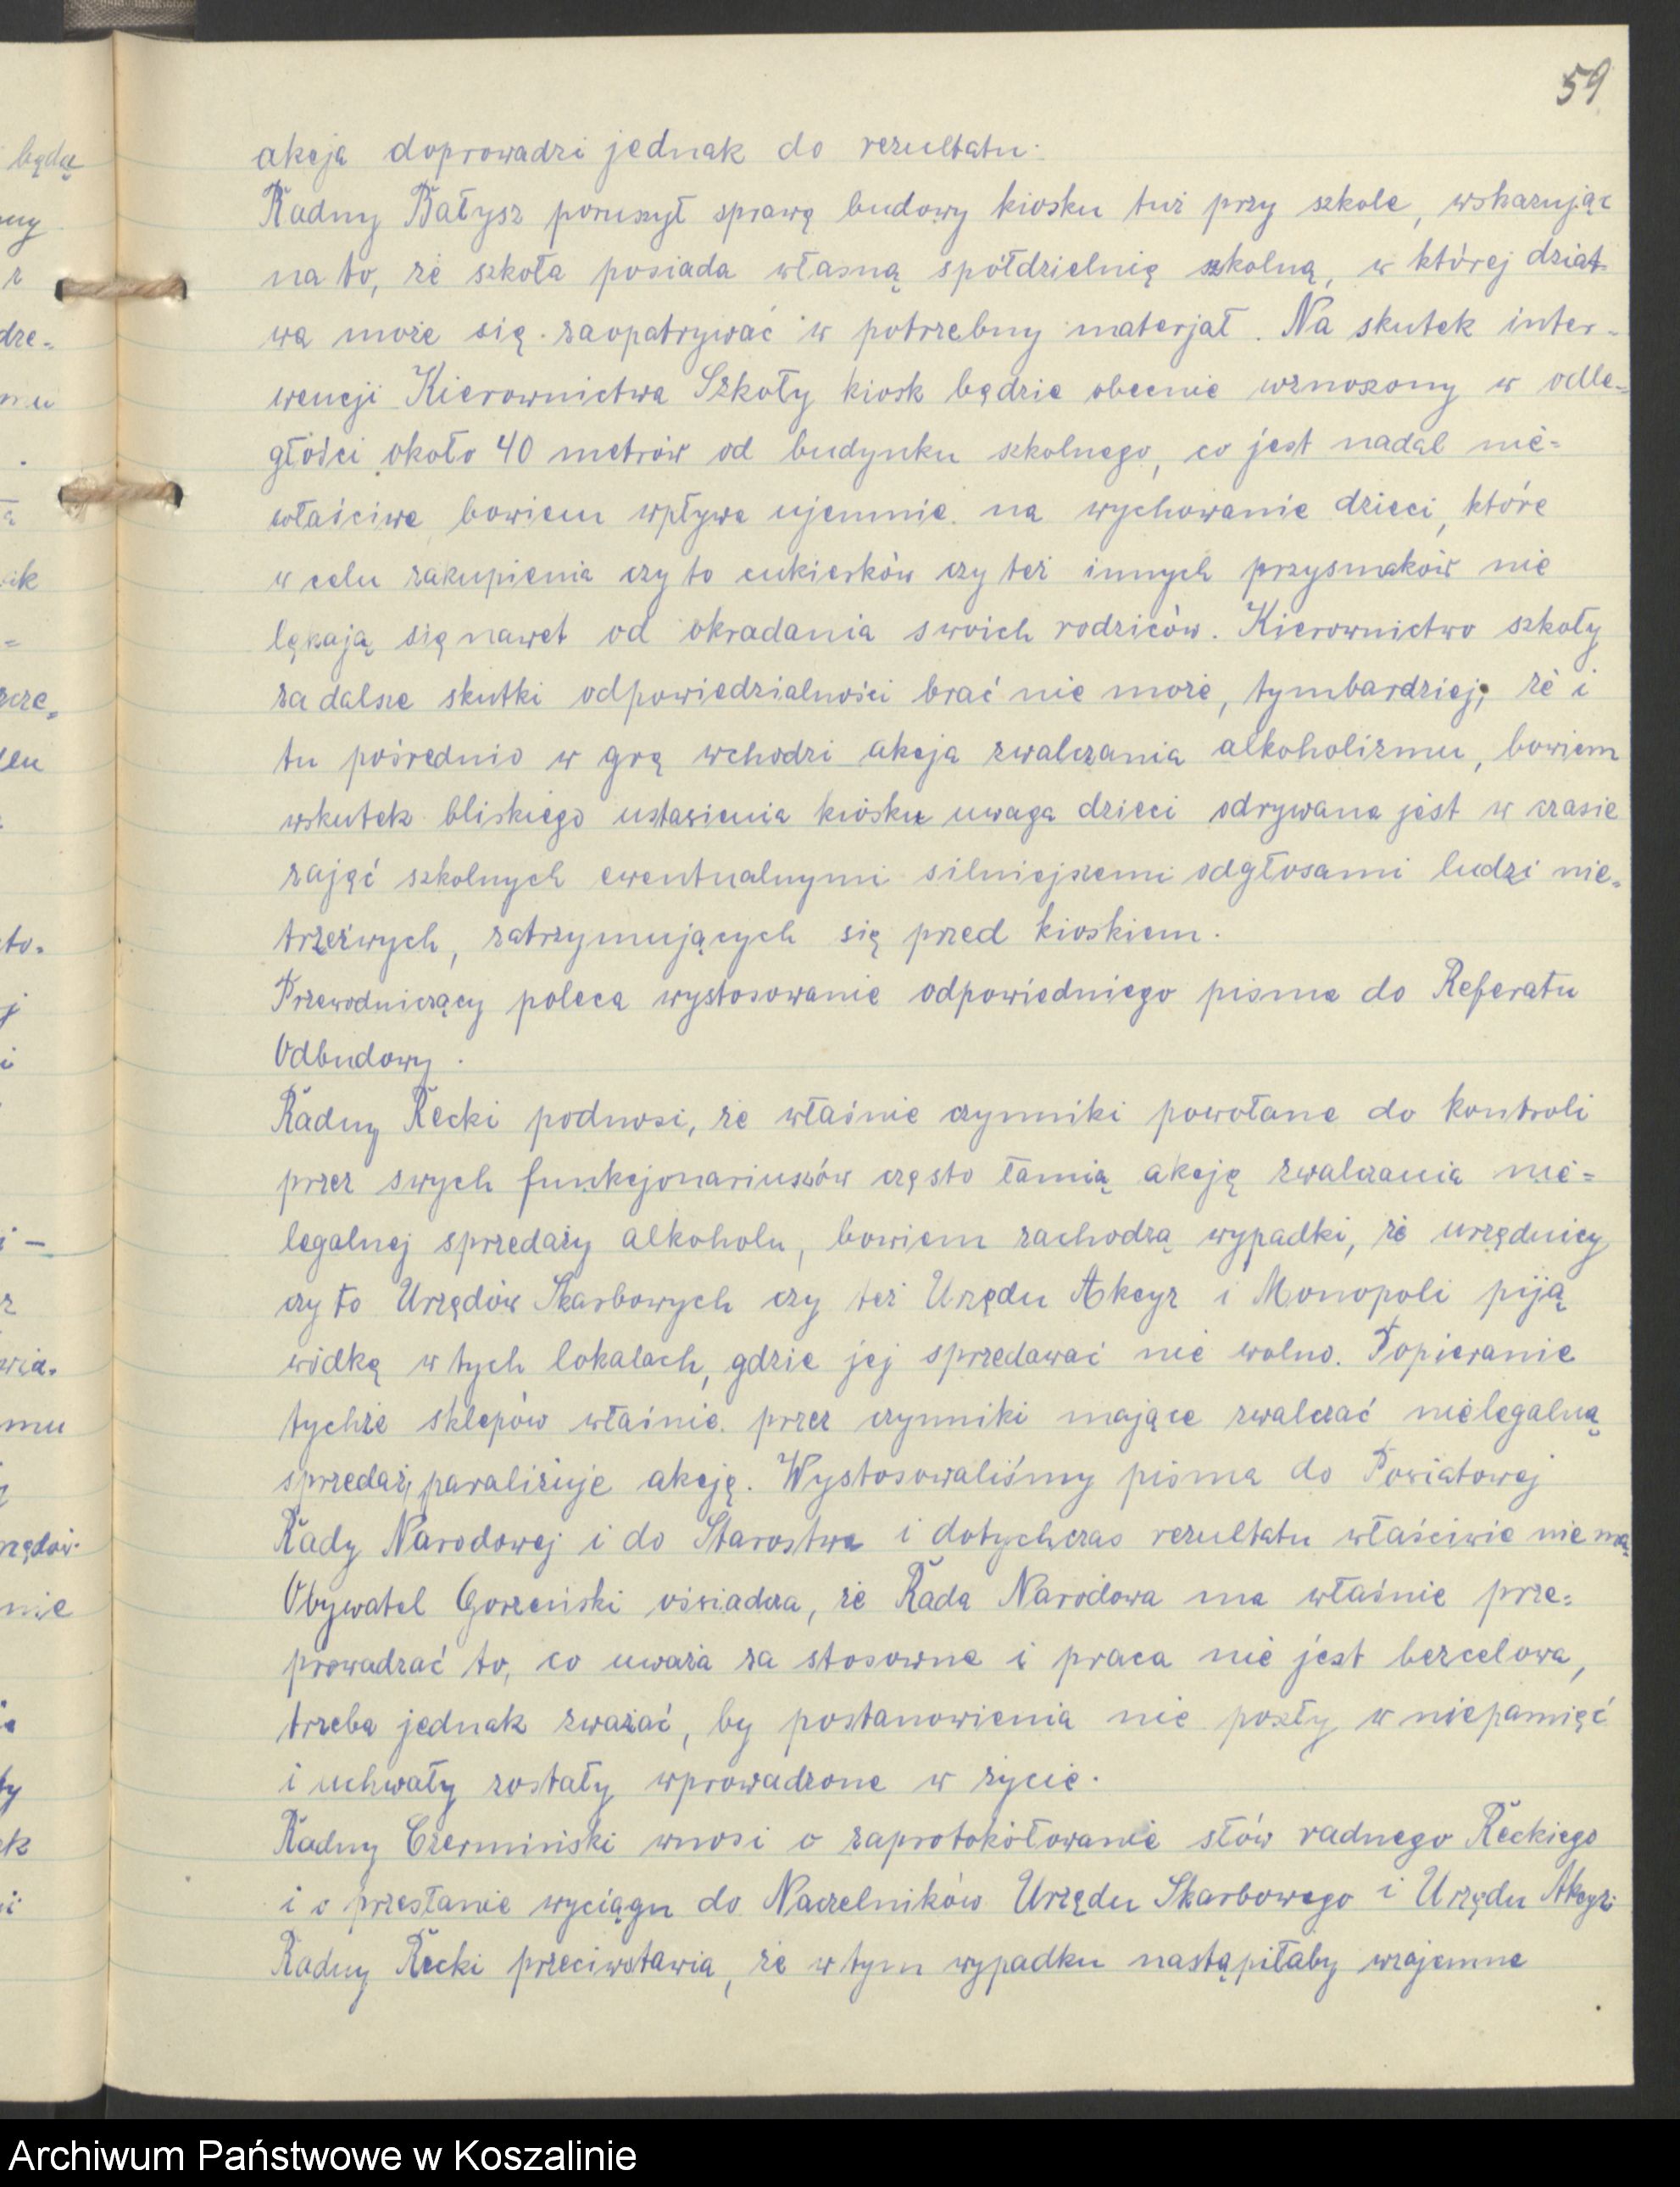 59
akcja doprowadzi jednak do rezultatu.
Radny Bałysz poruszył sprawę budowy kiosku tuż przy szkole, wskazując
na to, że szkoła posiada własną spółdzielnię szkolną, w której dziat-
wa może się zaopatrywać w potrzebny materjał. Na skutek inter-
wencji Kierownictwa Szkoły kiosk będzie obecnie wznoszony w odle-
głości około 40 metrów od budynku szkolnego, co jest nadal nie-
właściwe bowiem wpływa ujemnie na wychowanie dzieci, które
w celu zakupienia czy to cukierków czy też innych przysmaków nie
lękają się nawet od okradania swoich rodziców. Kierownictwo szkoły
za dalsze skutki odpowiedzialności brać nie może, tymbardziej, że i
tu pośrednio w grę wchodzi akcja zwalczania alkoholizmu, bowiem
wskutek bliskiego ustawienia kiosku uwaga dzieci odrywana jest w czasie
zajęć szkolnych ewentualnymi silniejszemi odgłosami ludzi nie-
trzeźwych, zatrzymujących się przed kioskiem.
Przewodniczący poleca wystosowanie odpowiedniego pisma do Referatu
Odbudowy.
Radny Recki podnosi, że właśnie czynniki powołane do kontroli
przez swych funkcjonariuszów często łamią akcję zwalczania nie-
legalnej sprzedaży alkoholu, bowiem zachodzą wypadki, że urzędnicy
czy to Urzędów Skarbowych czy też Urzędu Akcyz i Monopoli piją
wódkę w tych lokalach, gdzie jej sprzedawać nie wolno. Popieranie
tychże sklepów właśnie przez czynniki mające zwalczać nielegalną
sprzedaż, paraliżuje akcję. Wystosowaliśmy pisma do Powiatowej
Rady Narodowej i do Starostwa i dotychczas rezultatu właściwie nie ma.
Obywatel Gorzeński oświadcza, że Rada Narodowa ma właśnie prze-
prowadzać to, co uważa za stosowne i praca nie jest bezcelowa,
trzeba jednak zważać, by postanowienia nie poszły w niepamięć
i uchwały zostały wprowadzone w życie.
Radny Czermiński wnosi o zaprotokółowanie słów radnego Reckiego
i o przesłanie wyciągu do Naczelników Urzędu Skarbowego i Urzędu Akcyz.
Radny Recki przeciwstawia, że w tym wypadku nastąpiłaby wzajemne
Archiwum Państwowe w Koszalinie